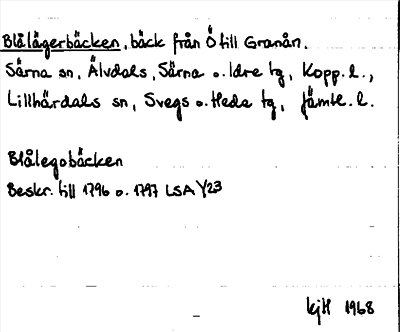 Blålägerbäcken, bäck från Ö till Granån.
Särna sn, Älvdals, Särna o. Idre tg, Kopp. l.,
Lillhärdals sn, Svegs o. Hede tg, Jämtl. l.
Blålegobäcken
Beskr. till 1796 o. 1797 LSA Y23
kjH 1968